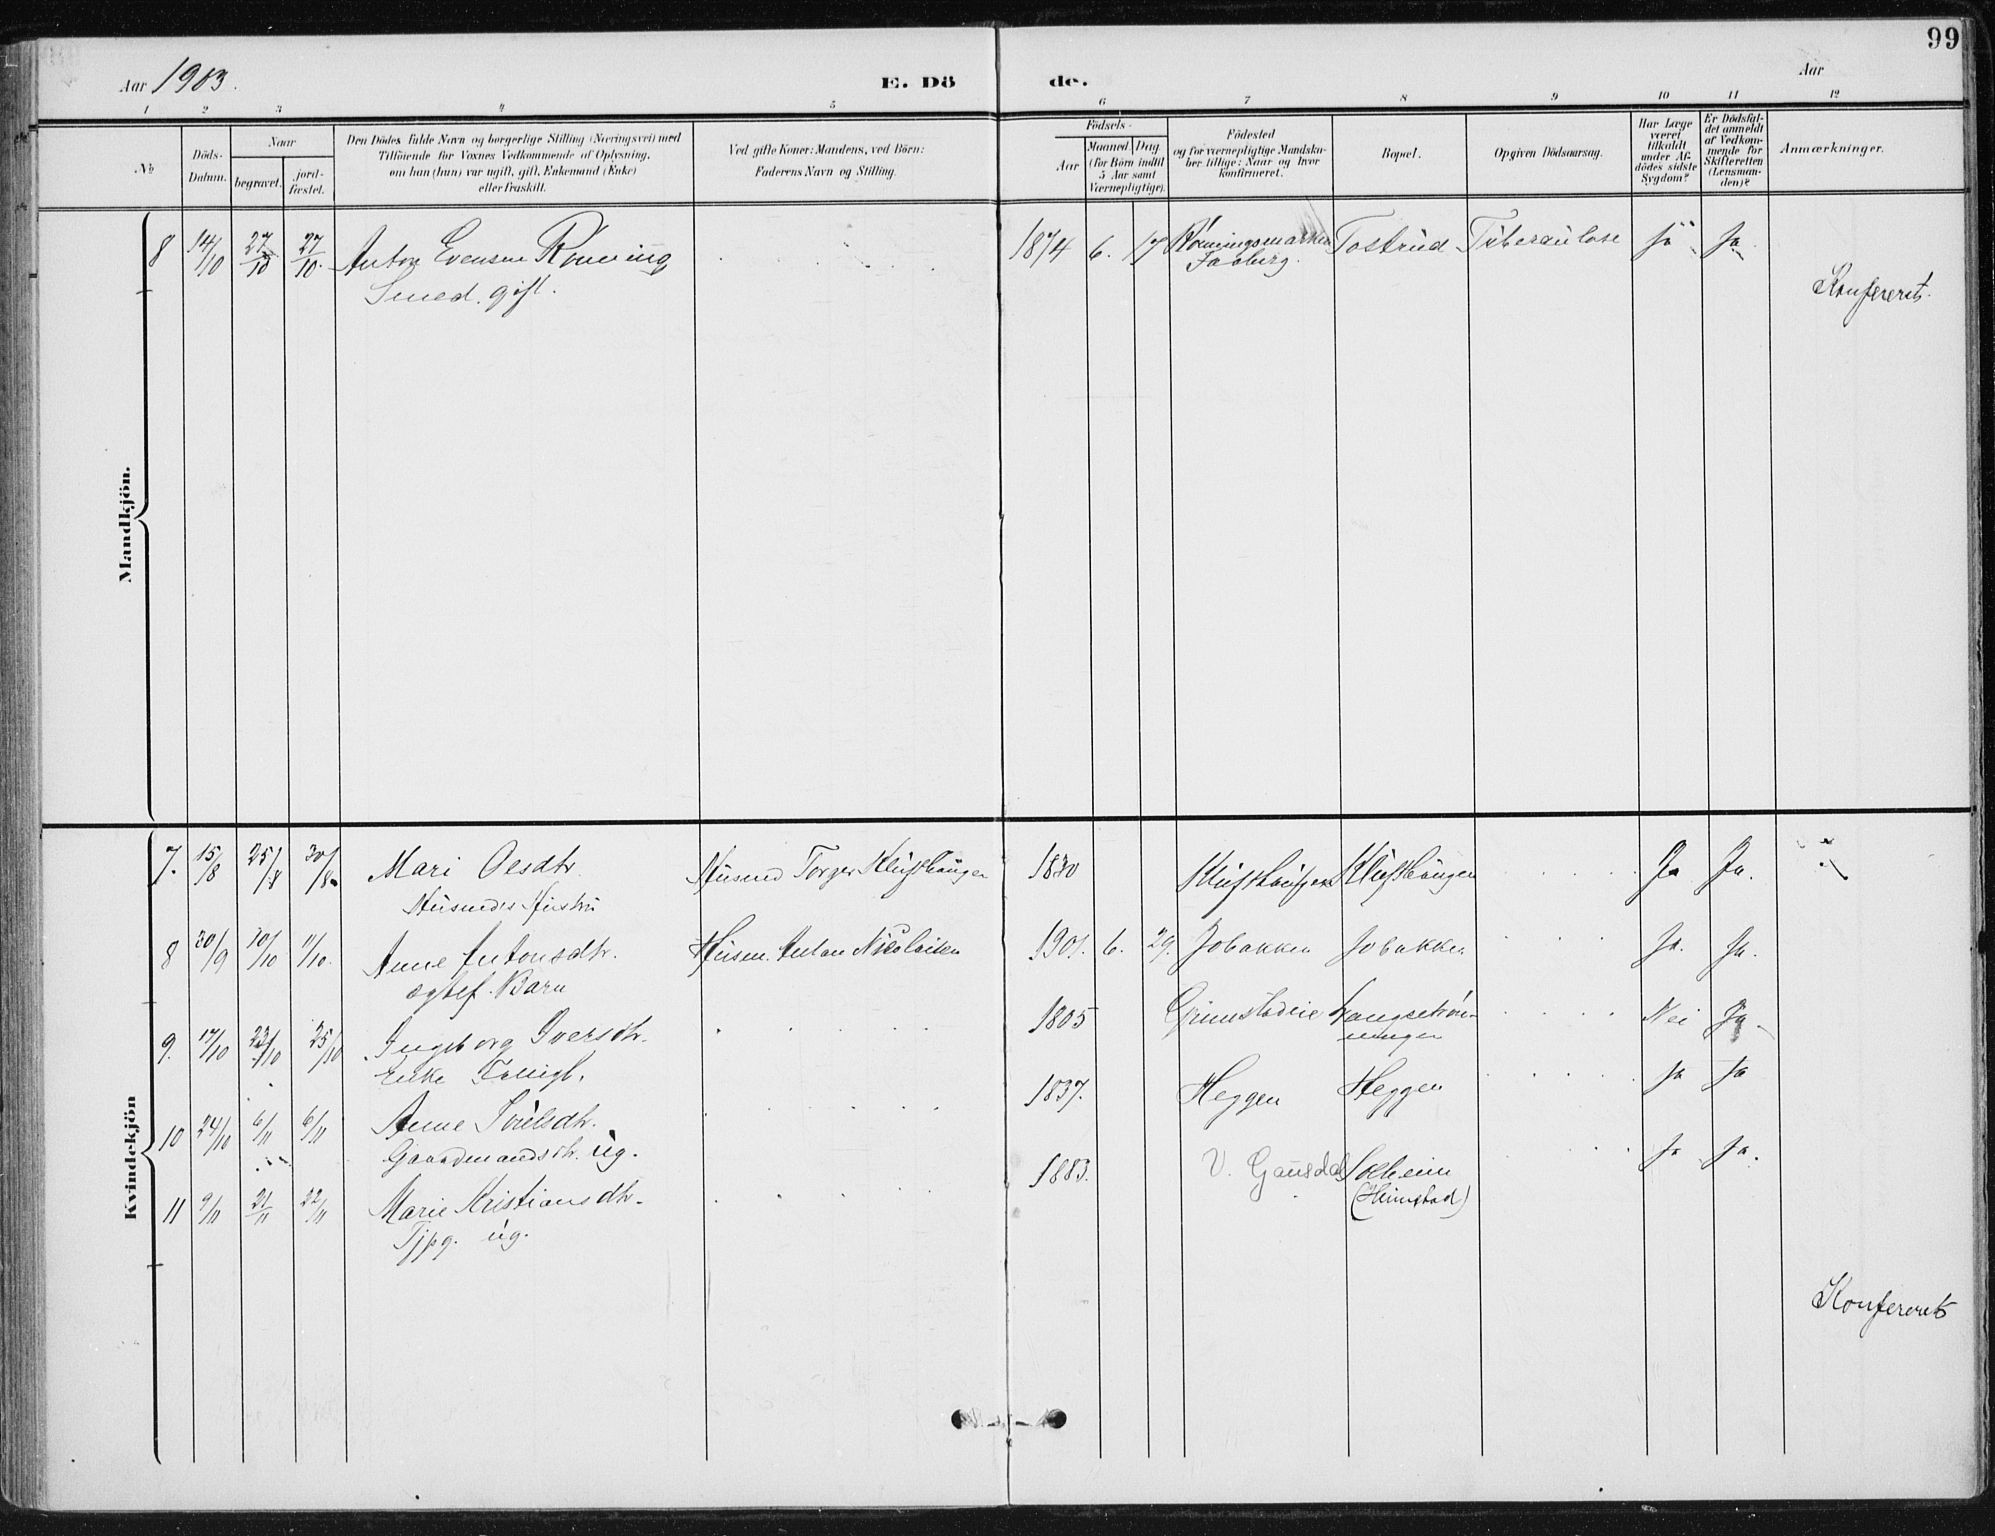 99
Aar 1903.
E. Dö de.
Aar
1 2 3 4 5 6 7 8 9 10 11 12
№
Döds-Datum.
Naar
begravet.
jord-fæstet.
Den Dödes fulde Navn og borgerlige Stilling (Næringsvei) med
Tilföiende for Voxnes Vedkommende af Oplysning,
om han (hun) var ugift, gift, Enkemand (Enke)
eller fraskilt.
Ved gifte Koner: Mandens, ved Börn:
Faderens Navn og Stilling.
Födsels-
Aar
Maaned Dag
(for Börn indtil
5 Aar samt
Værnepligtige).
Födested
og for værnepligtige Mandska-
ber tillige: Naar og hvor
konfirmeret.
Bopæl.
Opgiven Dödsaarsag.
Har Læge
været
tilkaldt
under Af-
dödes sidste
Sygdom?
Er Dödsfal-
det anmeldt
af Vedkom-
mende for
Skifteretten
(Lensman-
den)?
Anmærkninger.
Mandkjön.
8 14/10 27/10 27/10 Anton Evensen Rönning 1874 6. 17 Rönningsmarken Tostrud Tuberculose ja Ja
Smed. gift. Faaberg.
Konfereret.
Kvindekjön
7. 15/8 25/8 30/8 Mari Olsdtr. Husmd Torger Klufthaugen 1830 Klufthaugen Klufthaugen Ja Ja.
Husmands Hustru
8 30/9 10/10 11/10. Anne Antonsdtr. Husm. Anton Nicolaisen 1901. 6. 29. Jobakken Jobakken Ja. Ja.
ægtef. Barn
9. 17/10 23/10 25/10 Ingeborg Iversdtr. 1805 Grimstadeie Nei Ja
Enke
10 24/10 6/11 6/11 Anne 1837. Heggen Heggen Ja Ja
Gaardmandsdtr. ug.
11 9/11 21/11 22/11 Marie Kristiansdtr. 1883. V. Gausdal Solheim Ja Ja.
Tjpg. ug. (Heimstad)
Konfereret